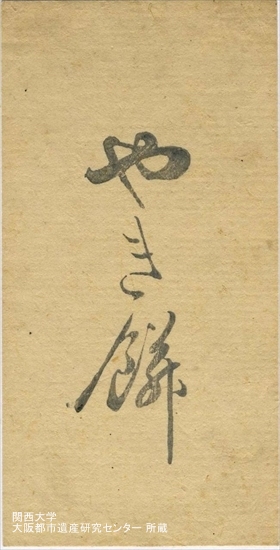 やき餅
関西大学
大阪都市遺産研究センター 所蔵